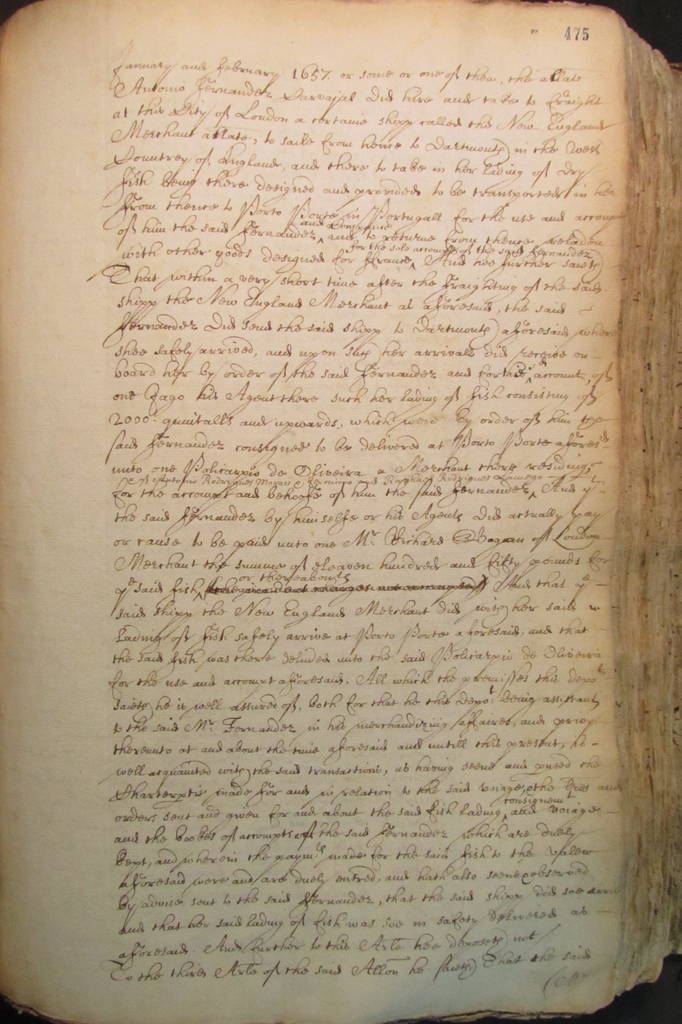 475
January and February 1657. or some or one of them, the arlate
Antonio Fernandez Carvajal did hire and take to fraight
at this City of London a certaine shipp called the New England
Merchant arlate, to saile from hence to Dartmouth in the West
Countrey of England, and there to take in her lading of dry
fish being there designed and provided to be transported in her
from thence to Porto Porte in Portugall for the use and account
and Companie
of him the said Fernandez, and to returne from thence reladen
for the sole account of the said Fernandez
with other goods designed for France, And hee further saieth
That within a very short time after the fraighting of the said
shipp the New England Merchant as aforesaid, the said
Fernandez did send the said shipp to Dartmouth aforesaid, where
shee safely arrived, and upon such her arrivall did receive on
board her by order of the said Fernandez and for the account, of
one Jago his Agent there such her lading of fish consisting of
2000: quintalls and upwards, which were by order of him the
said Fernandez consigned to be delivered at Porto Porte aforesd
unto one Policarpio de Oliveira a Merchant there residing
Rodrigues Moran Rodrigues
for the account and behoofe of him the said Fernandez, And yt
the said Fernandez by himselfe or his Agents did actually pay
or cause to be paid unto one Mr. Richard of London
Merchant the summe of eleaven hundred and fifty pounds for
or thereabouts
ye said fish, And that ye
said shipp the New England Merchant did with her said
lading of fish safely arrive at Porto Porte aforesaid, and that
the said fish was there delivered unto the said Policarpio de Oliveira
for the use and account aforesaid. All which the premisses this depot
saieth he is well assured of, both for that he this depot being assistant
to the said Mr. Fernandez in his merchandizing affaires, and privy
thereunto at and about the time aforesaid and untill this present, is
well acquainted with the said transactions, as having seene and the
Charterpartie made for and in relation to the said voiage, the and
consignemt
orders sent and given for and about the said fish lading, and voiage
and the bookes of accompts of the said Fernandez which are duely
kept, and wherein the paymts made for the said fish to the vallew
aforesaid were and are duely entred, and hath also seene & observed
by advise sent to the said Fernandez, that the said shipp did soe arrive
and that her said lading of fish was soe in safety delivered as
aforesaid And further to this Arle hee deposeth not /
To the third Arle of the said Allon he saieth That the said